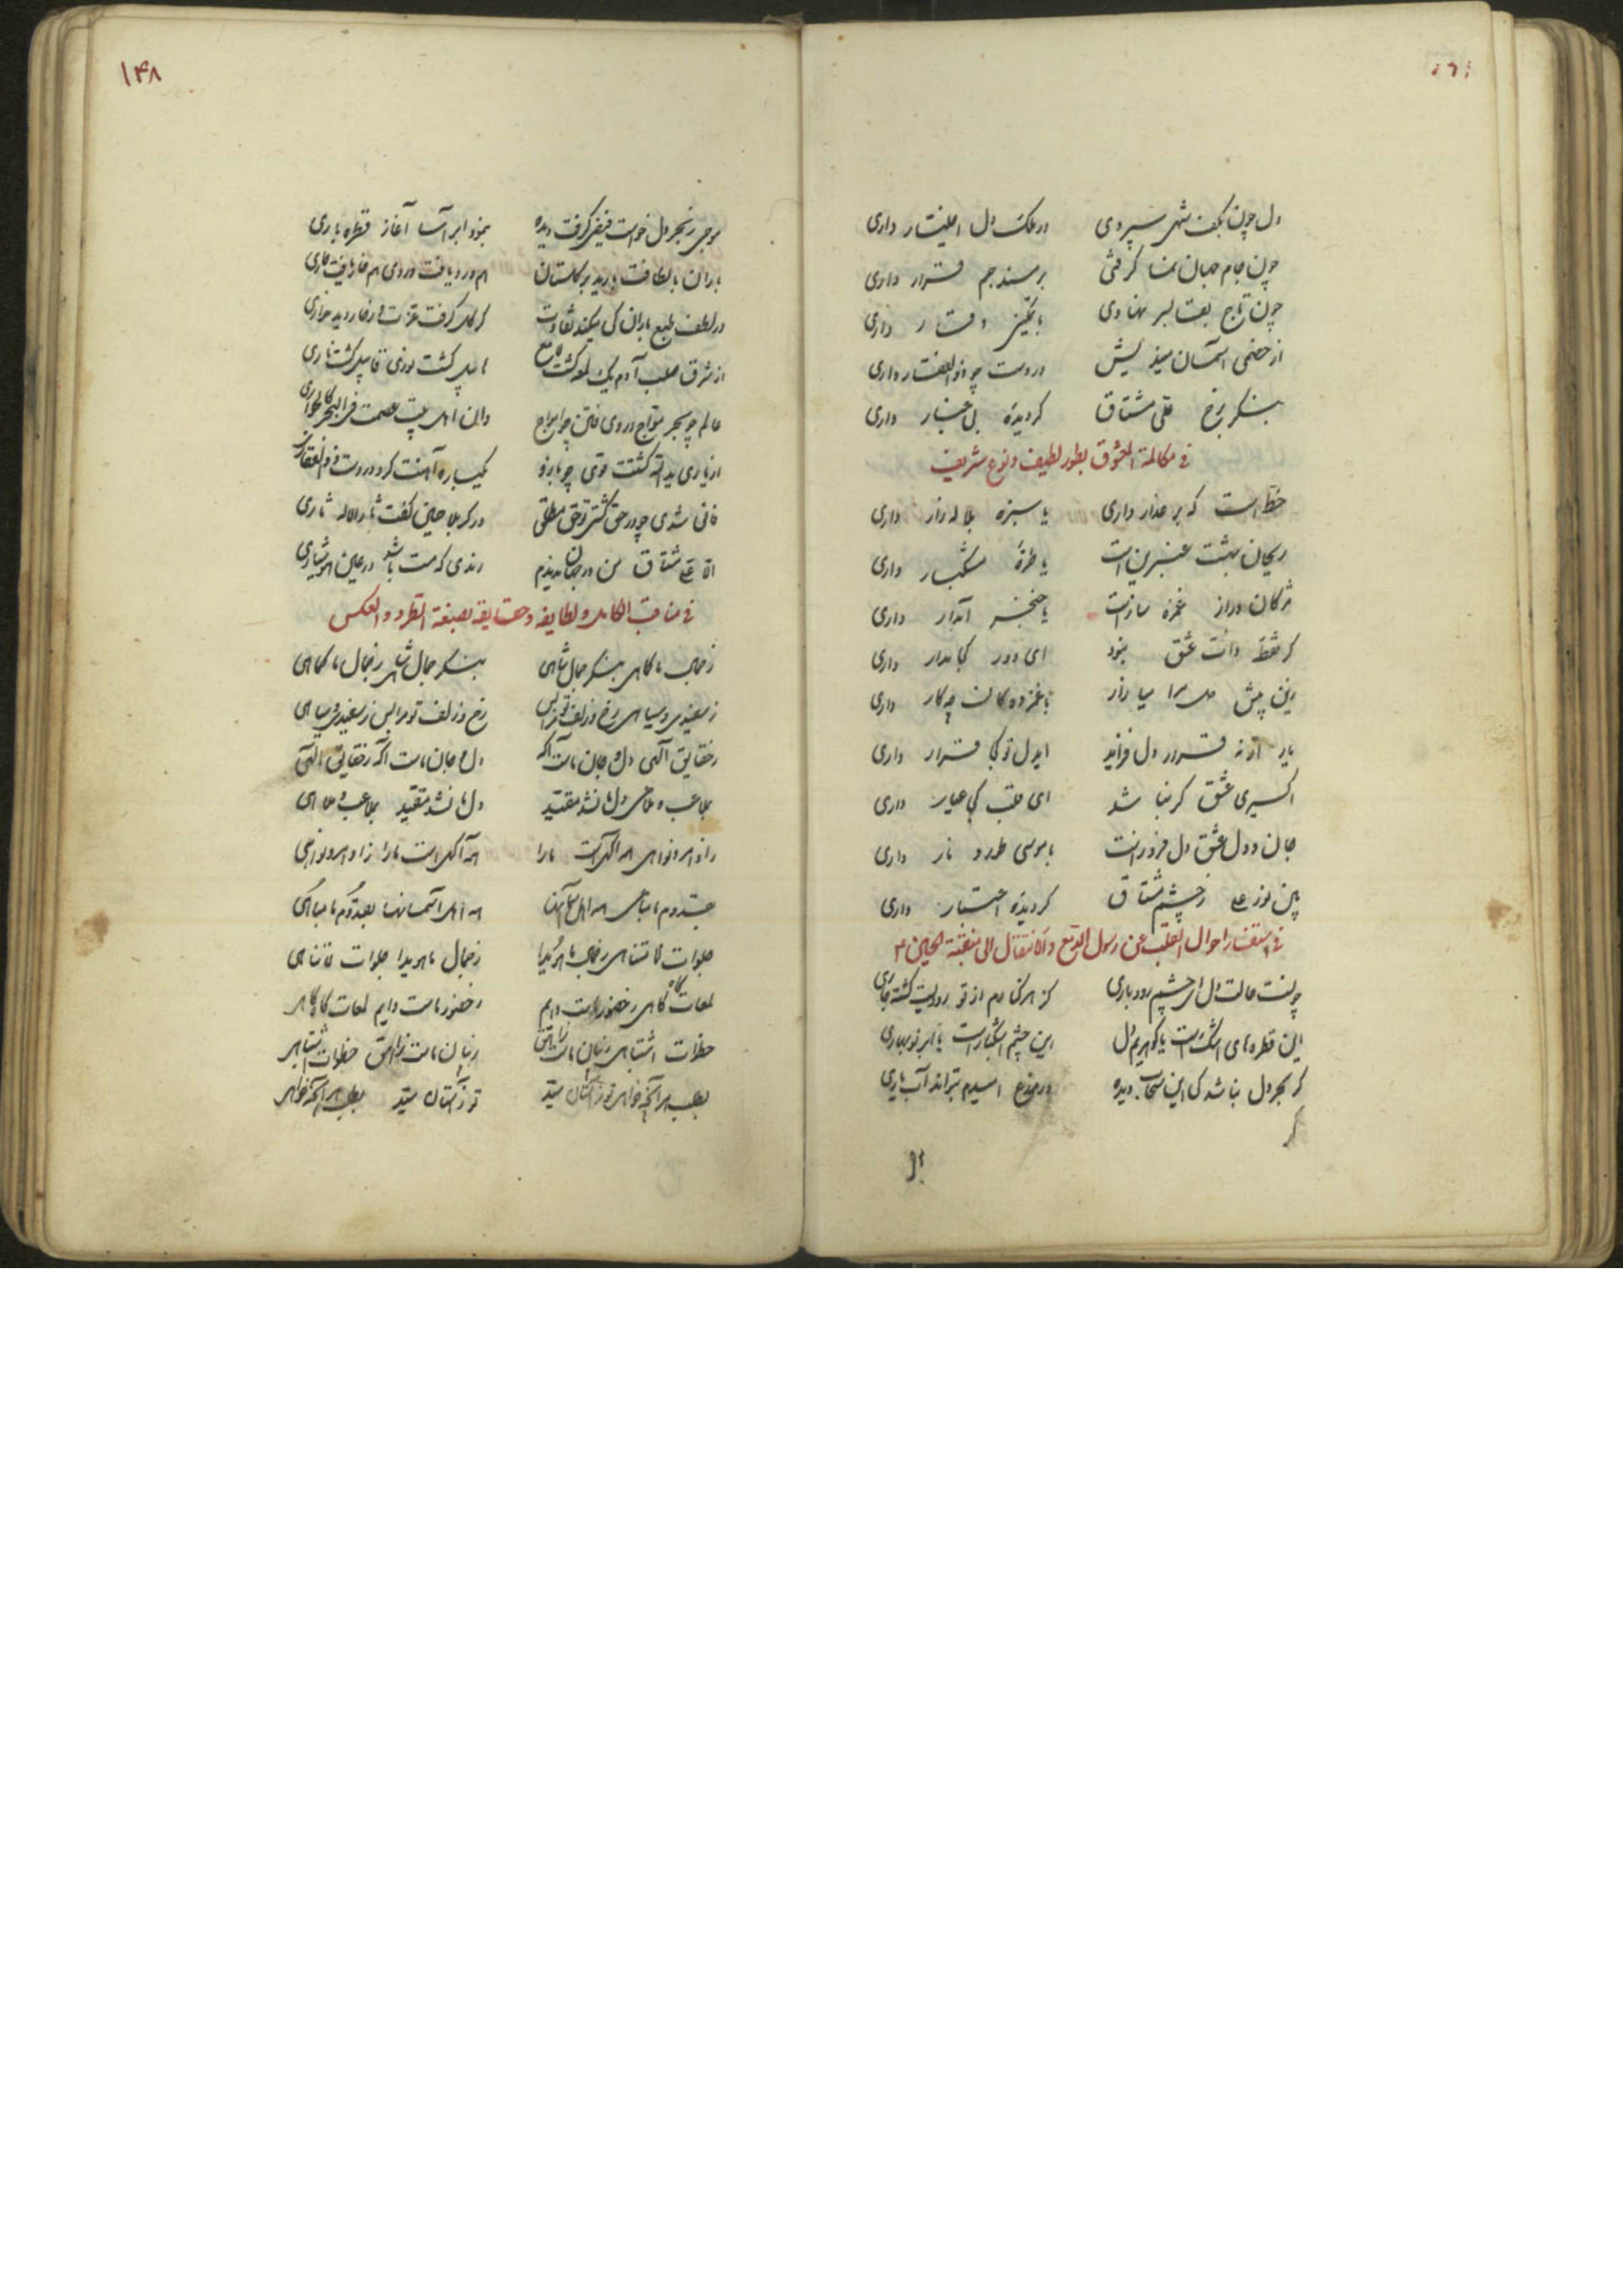 دل چون بکف شهی سپردی در ملک دل اختیار داری
چون جام جهان نما گرفتی بر مسند جم قرار داری
چون تاج بقا بسر نهادی با تمکین وقار داری
از خصمی آسمان میندیش در دست چو ذوالفقار داری
بنگر برخ علی مشتاق گر دیدهٔ بی غبار داری
فی مکالمة المعشوق بطور لطیف و نوع شریف
خط است که بر عذار داری یا سبزه بلاله زار داری
ریحان بهشت عنبرین است یا طرهٔ مشکبار داری
مژگان دراز غمزه سازت یا خنجر آبدار داری
گر نقطه ذات عشق نبود ای دور کجا مدار داری
زین پیش میازار با غمزدگان چه کار داری
یار ار نه قرار دل فزاید ایدل تو کجا قرار داری
اکسیری عشق گر نباشد ای قلب کجا عیار داری
جان و دل عشق دل فروزت یا موسی طور و نار داری
بین نور علی ز چشم مشتاق گر دیدهٔ اعتبار داری
فی استفسار احوال القلب عن رسول الدمع و الانتقال الی منقبة الحسین ع
چونست حالت دل ای چشم رود باری کز هر کنارم از تو رودیست گشته جاری
این قطره های اشک است یا گوهریم دل این چشم اشکبار است یا ابر نوبهاری
گر بحر دل نباشد کی این سحاب دیده در مزرع امیدم بتواند آب یاری
۱۴۸
موجی ز بحر دل خواست فیضی گرفت دیده بنمود ابر آسا آغاز قطره باری
باران با لطافت بارید بر گلستان هم ورد یافت وردی هم خار یافت خاری
در لطف طبع باران کی میکند تفاوت گر گل گرفت عزت ور خار دید خواری
از شرق صلب آدم یک لمعه گشت لامع هابیل گشت نوری قابیل گشت ناری
عالم چو بحر مواج در وی فتن چو امواج وان اهل بیت عصمت فی البحر کالجواری
از یاری ید الله گشتت قوی چو بازو یکباره آهنت کرد در دست ذوالفقاری
فانی شدی چو در حق گشتی تو حق مطلق در کربلا حسین گفت
الا علی مشتاق من در جهان ندیدم رندی که مست باشد در عین هوشیاری
فی مناقب الکامل و لطایفه و حقایقه بصنعة الطرد و العکس
ز جمال ما کماهی بنگر جمال شاهی بنگر جمال شاهی ز جمال ما کماهی
ز سفیدی و سیاهی رخ و زلف تو مرا بس رخ و زلف تو مرا بس ز سفیدی و سیاهی
ز حقایق آلهی دل و جان ماست آگه دل و جان ماست آگه ز حقایق الهی
دل ما نشد مقید دل ما نشد مقید
ز اوامر و نواهی همه آگهی است ما را همه آگهی است ما را ز اوامر و نواهی
بقدوم ما مباهی همه اهل آسمانها همه اهل آسمانها بقدوم ما مباهی
جلوات لا تناهی ز جمال ما هویدا ز جمال ما هویدا جلوات لا تناهی
لمعات گاه گاهی ز حضور ماست دایم ز حضور ماست دایم لمعات گاه گاهی
خطرات اشتباهی ز بیان ماست زاهق ز بیان ماست زاهق خطرات اشتباهی
بطلب هر آنچه خواهی تو ز آستان سید تو ز آستان سید بطلب هر آنچه خواهی